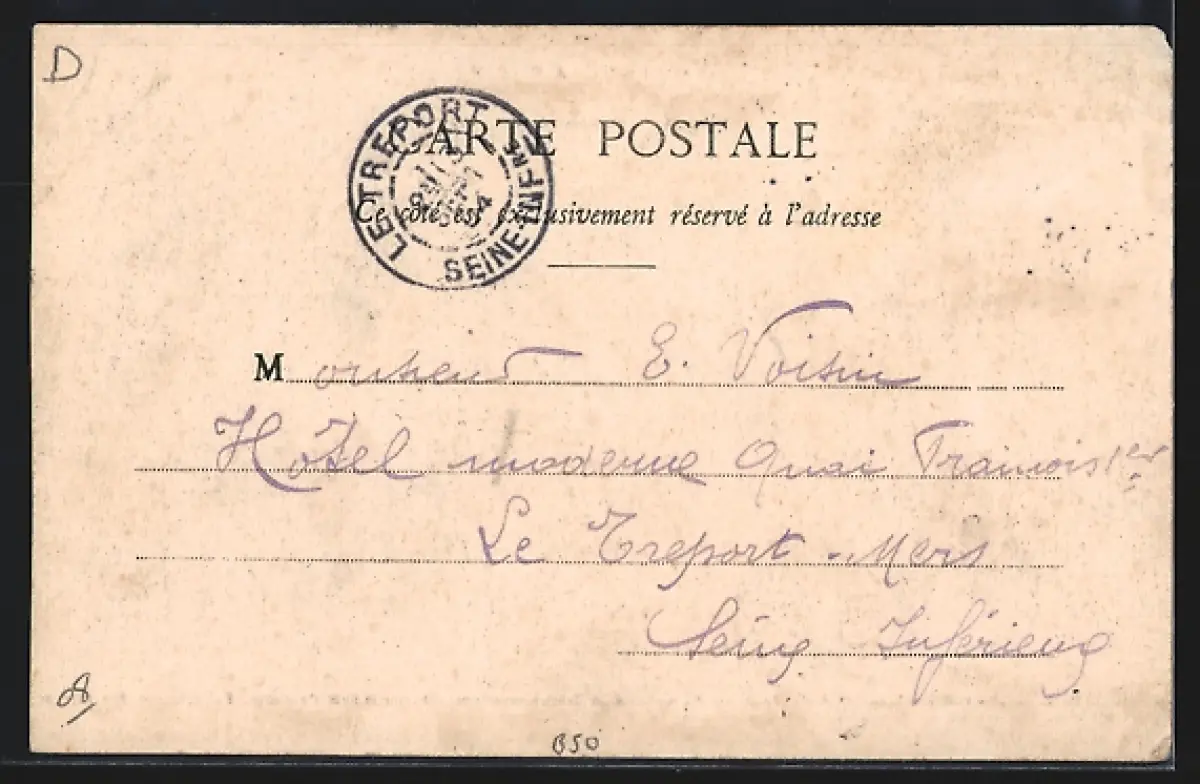 D
CARTE POSTALE
LE TREPORT SEINE-INFRE
Ce côté est exclusivement réservé à l'adresse
Monsieur E. Voisin
Hôtel moderne Quai François 1er
Le Treport - Mers
Seine Inférieure
B50